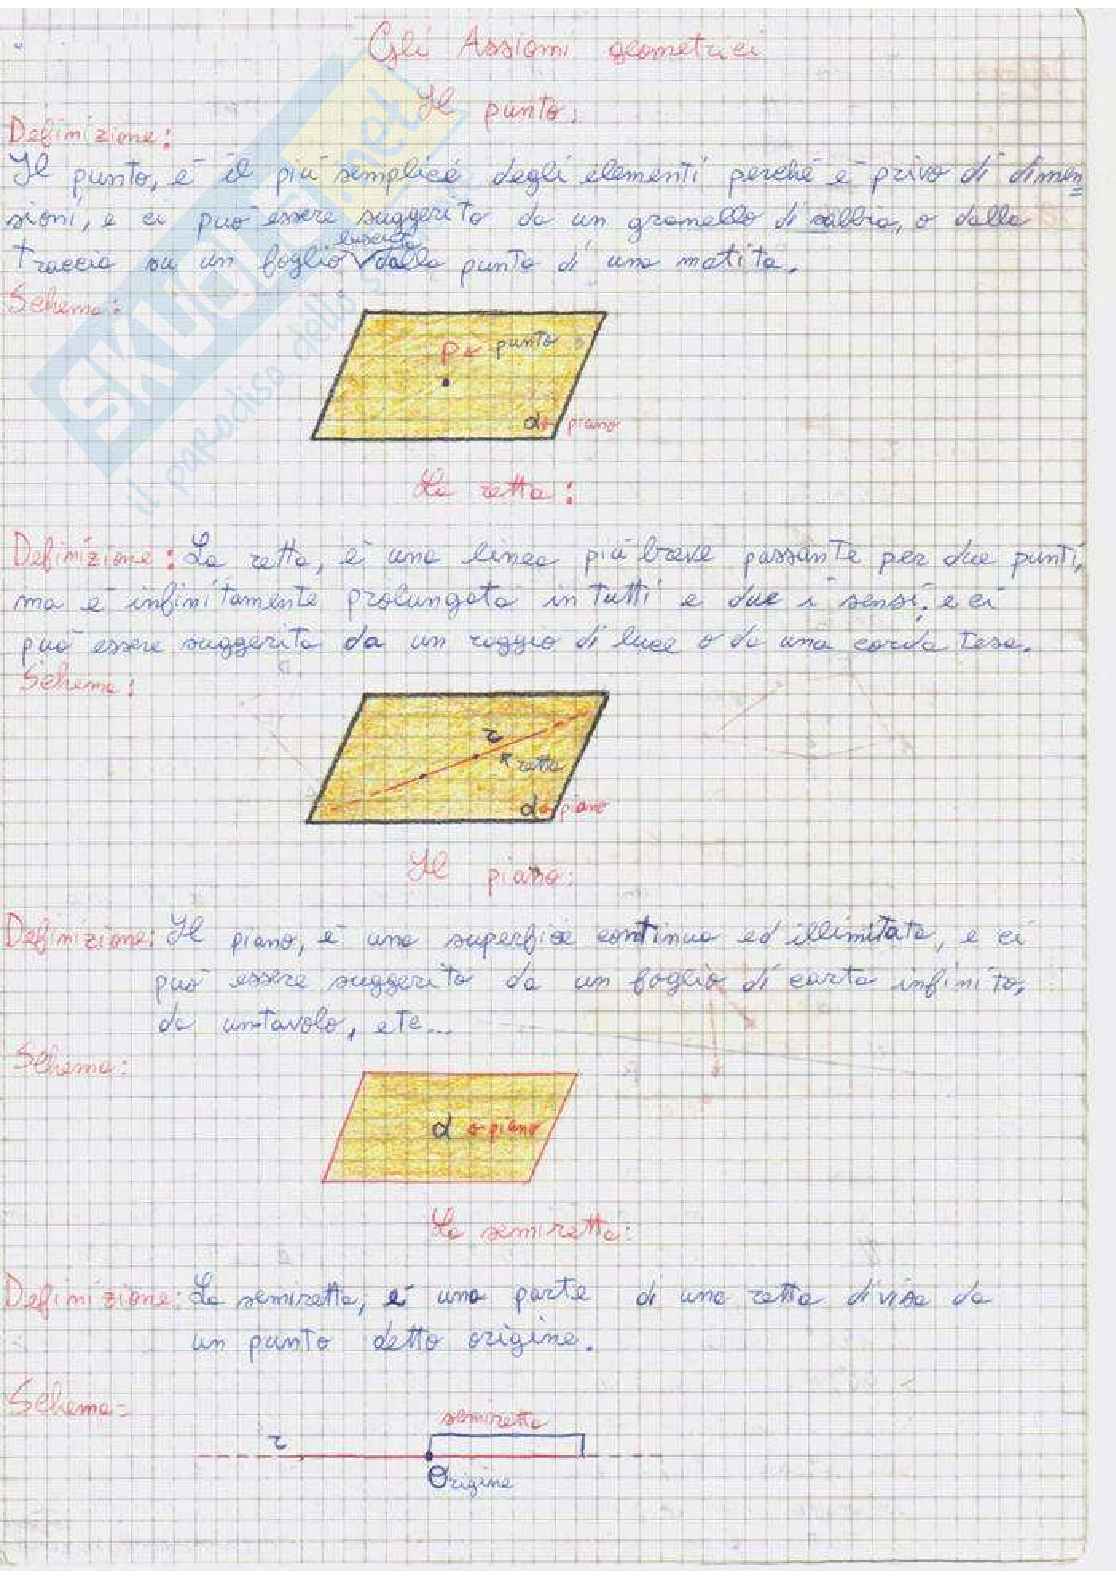 Gli Assiomi geometrici
Il punto:
Definizione:
Il punto, è il più semplice degli elementi perché è privo di dimen=
sioni, e ci può essere suggerito da un granello di sabbia, o dalla
traccia su un foglio lasciata dalla punta di una matita.
Schema:
P punto
α piano
La retta:
Definizione: La retta, è una linea più breve passante per due punti,
ma è infinitamente prolungata in tutti e due i sensi, e ci
può essere suggerita da un raggio di luce o da una corda tesa.
Schema:
r
retta
α piano
Il piano:
Definizione: Il piano, è una superfice continua ed illimitata, e ci
può essere suggerito da un foglio di carta infinito,
da un tavolo, etc...
Schema:
α piano
La semiretta:
Definizione: La semiretta, è una parte di una retta divisa da
un punto detto origine.
Schema=
semiretta
r
Origine
SKUOLA.net
il paradiso dello s